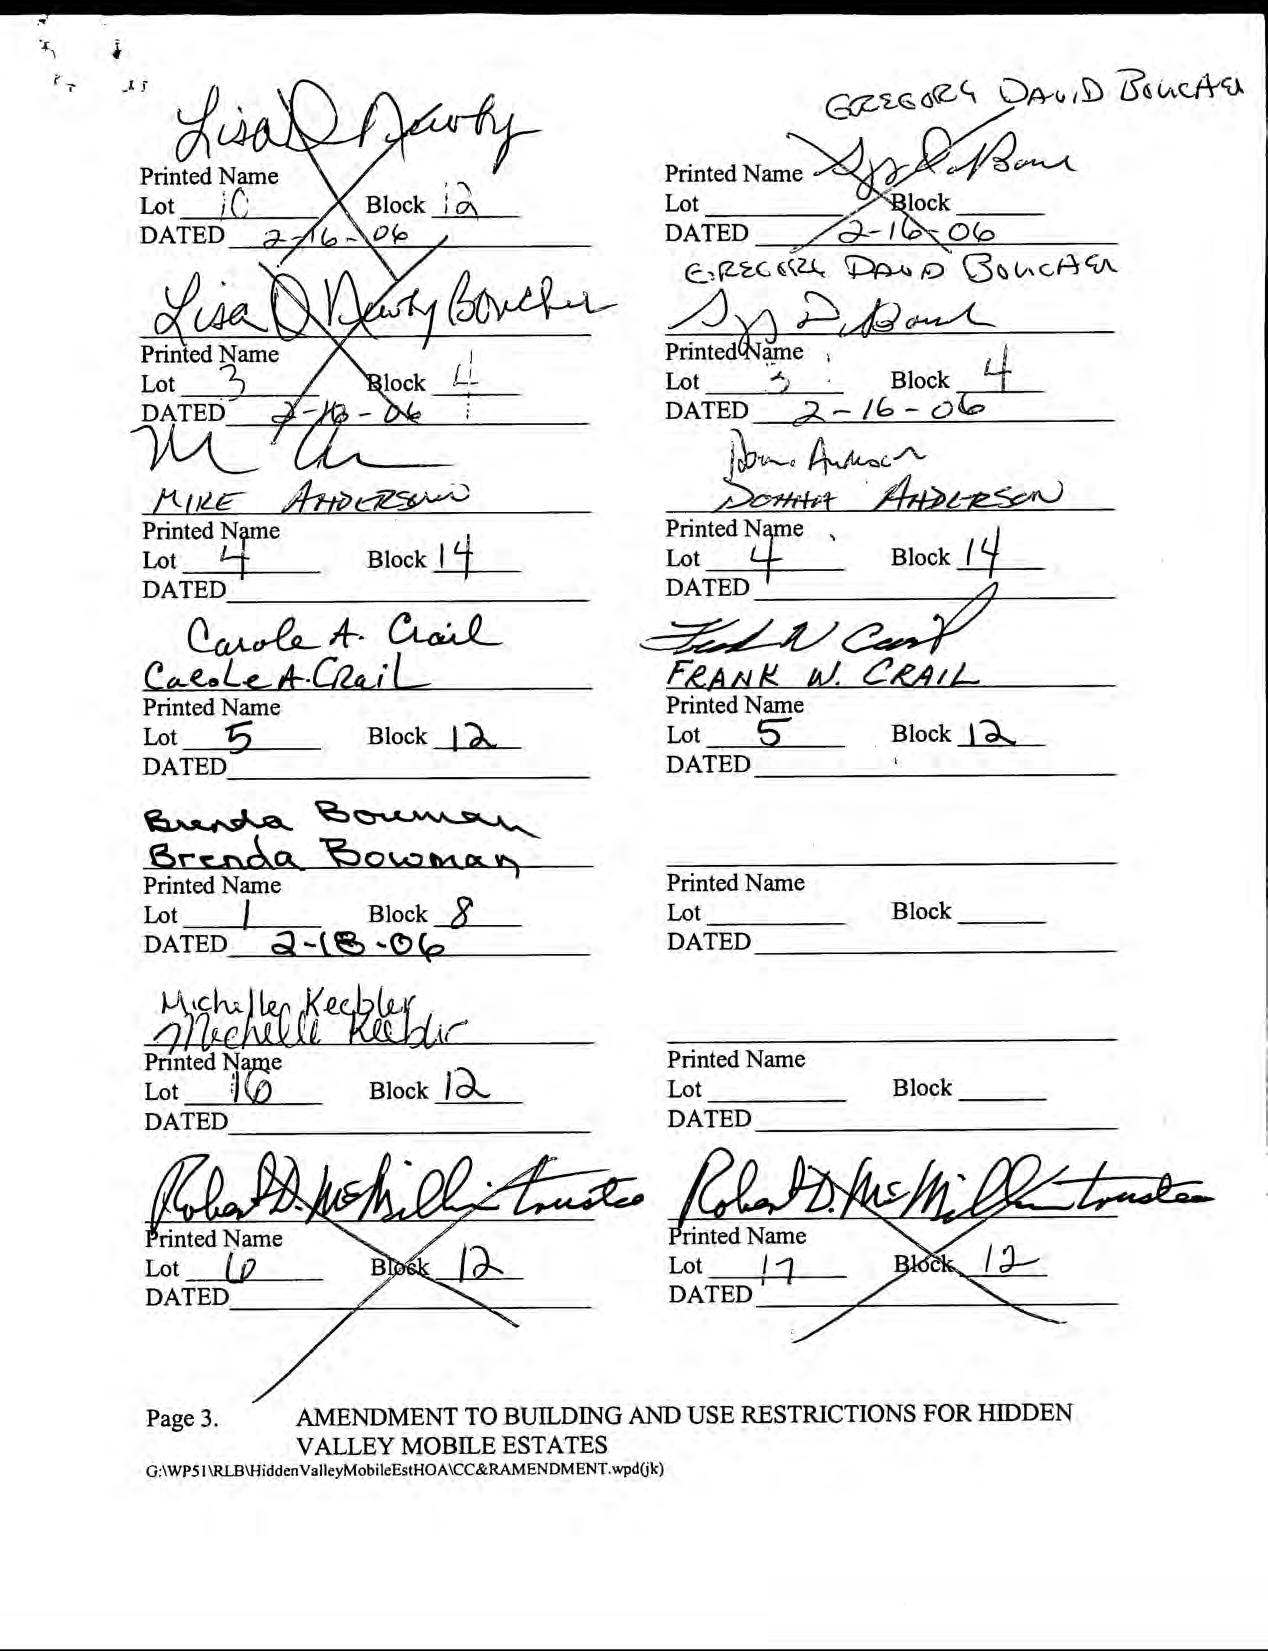 GREGORY DAVID BOUCHER
Lisa D Newby
Printed Name Printed Name
Lot 10 Block 12 Lot Block
DATED 2-16-06 DATED 2-16-06
GREGORY DAVID BOUCHER
Lisa D Newby Boucher
Printed Name Printed Name
Lot 3 Block 4 Lot 3 Block 4
DATED 2-16-06 DATED 2-16-06
Donna Anderson
MIKE ANDERSON DONNA ANDERSON
Printed Name Printed Name
Lot 4 Block 14 Lot 4 Block 14
DATED DATED
Carole A. Crail
Carole A. Crail FRANK W. CRAIL
Printed Name Printed Name
Lot 5 Block 12 Lot 5 Block 12
DATED DATED
Brenda Bowman
Brenda Bowman
Printed Name Printed Name
Lot 1 Block 8 Lot Block
DATED 2-18-06 DATED
Michelle Keebler
Michelle Keebler
Printed Name Printed Name
Lot 16 Block 12 Lot Block
DATED DATED
Robert D. McMillin trustee Robert D. McMillin trustee
Printed Name Printed Name
Lot 10 Block 12 Lot 17 Block 12
DATED DATED
Page 3. AMENDMENT TO BUILDING AND USE RESTRICTIONS FOR HIDDEN
VALLEY MOBILE ESTATES
G:\WP51\RLB\HiddenValleyMobileEstHOA\CC&RAMENDMENT.wpd(jk)